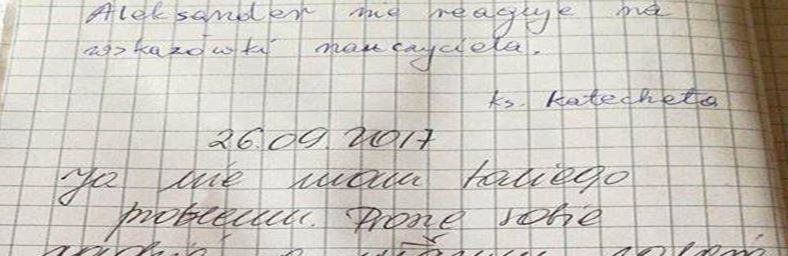 Aleksander nie reaguje na
wskazówki nauczyciela.
ks. Katecheta
26.09.2017
Ja nie mam takiego
problemu. Proszę sobie